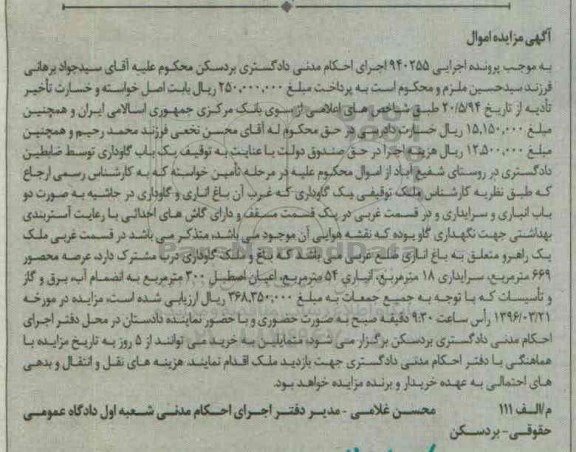 آگهی مزایده اموال
به موجب پرونده اجرایی ۹۴۰۲۵۵ اجرای احکام مدنی دادگستری بردسکن محکوم علیه آقای سیدجواد برهانی
فرزند سیدحسین ملزم و محکوم است به پرداخت مبلغ ۲۵۰,۰۰۰,۰۰۰ ریال بابت اصل خواسته و خسارت تأخیر
تأدیه از تاریخ ۲۰/۵/۹۴ طبق شاخص های اعلامی از سوی بانک مرکزی جمهوری اسلامی ایران و همچنین
مبلغ ۱۵,۱۵۰,۰۰۰ ریال خسارت دادرسی در حق محکوم له آقای محسن نخعی فرزند محمد رحیم و همچنین
مبلغ ۱۲,۵۰۰,۰۰۰ ریال هزینه اجرا در حق صندوق دولت با عنایت به توقیف یک باب گاوداری توسط ضابطین
دادگستری در روستای شفیع آباد از اموال محکوم علیه در مرحله تأمین خواسته که به کارشناس رسمی ارجاع
که طبق نظریه کارشناس ملک توقیفی یک گاوداری که غرب آن باغ اناری و گاوداری در حاشیه به صورت دو
باب انباری و سرایداری و در قسمت غربی در یک قسمت مسقف و دارای گاش های احداثی با رعایت آستربندی
بهداشتی جهت نگهداری گاو بوده که نقشه هوایی آن موجود می باشد، متذکر می باشد در قسمت غربی ملک
یک راهرو متعلق به باغ اناری ضلع غربی می باشد که باغ و ملک گاوداری درب مشترک دارد، عرصه محصور
۶۶۹ مترمربع، سرایداری ۱۸ مترمربع، انباری ۵۴ مترمربع، اعیان اصطبل ۳۰۰ مترمربع به انضمام آب، برق و گاز
و تأسیسات که با توجه به جمیع جمعات به مبلغ ۳۶۸,۳۵۰,۰۰۰ ریال ارزیابی شده است، مزایده در مورخه
۱۳۹۶/۰۳/۲۱ رأس ساعت ۹:۳۰ دقیقه صبح به صورت حضوری و با حضور نماینده دادستان در محل دفتر اجرای
احکام مدنی دادگستری بردسکن برگزار می شود، متمایلین به خرید می توانند از ۵ روز به تاریخ مزایده با
هماهنگی با دفتر احکام مدنی دادگستری جهت بازدید ملک اقدام نمایند. هزینه های نقل و انتقال و بدهی
های احتمالی به عهده خریدار و برنده مزایده خواهد بود.
م/الف ۱۱۱ محسن غلامی - مدیر دفتر اجرای احکام مدنی شعبه اول دادگاه عمومی
حقوقی - بردسکن